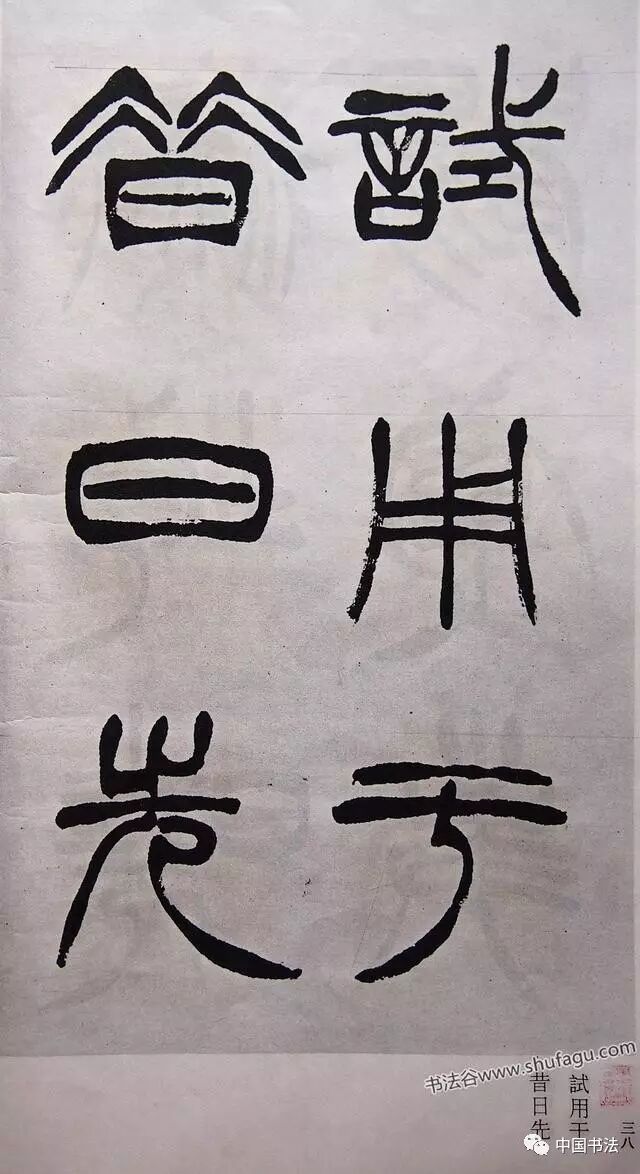 試用于
昔日先
书法谷www.shufagu.com
三八
試用于
昔日先
中国书法